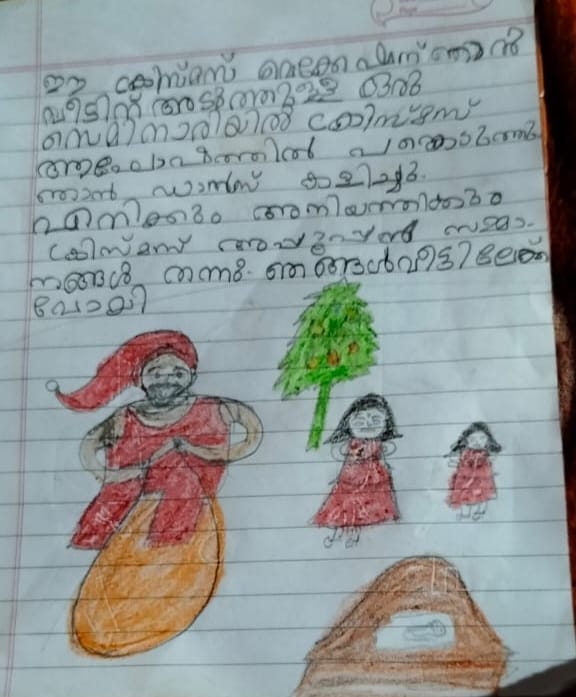 ഈ ക്രിസ്മസ് വെക്കേഷന് ഞാൻ
വീടിന് അടുത്തുള്ള ഒരു
സെമിനാരിയിൽ ക്രിസ്മസ്
ആഘോഷത്തിൽ പങ്കെടുത്തു
ഞാൻ ഡാൻസ് കളിച്ചു.
എനിക്കും അനിയത്തിക്കും
ക്രിസ്മസ് അപ്പൂപ്പൻ സമ്മാ-
നങ്ങൾ തന്നു. ഞങ്ങൾ വീട്ടിലേക്ക്
പോയി